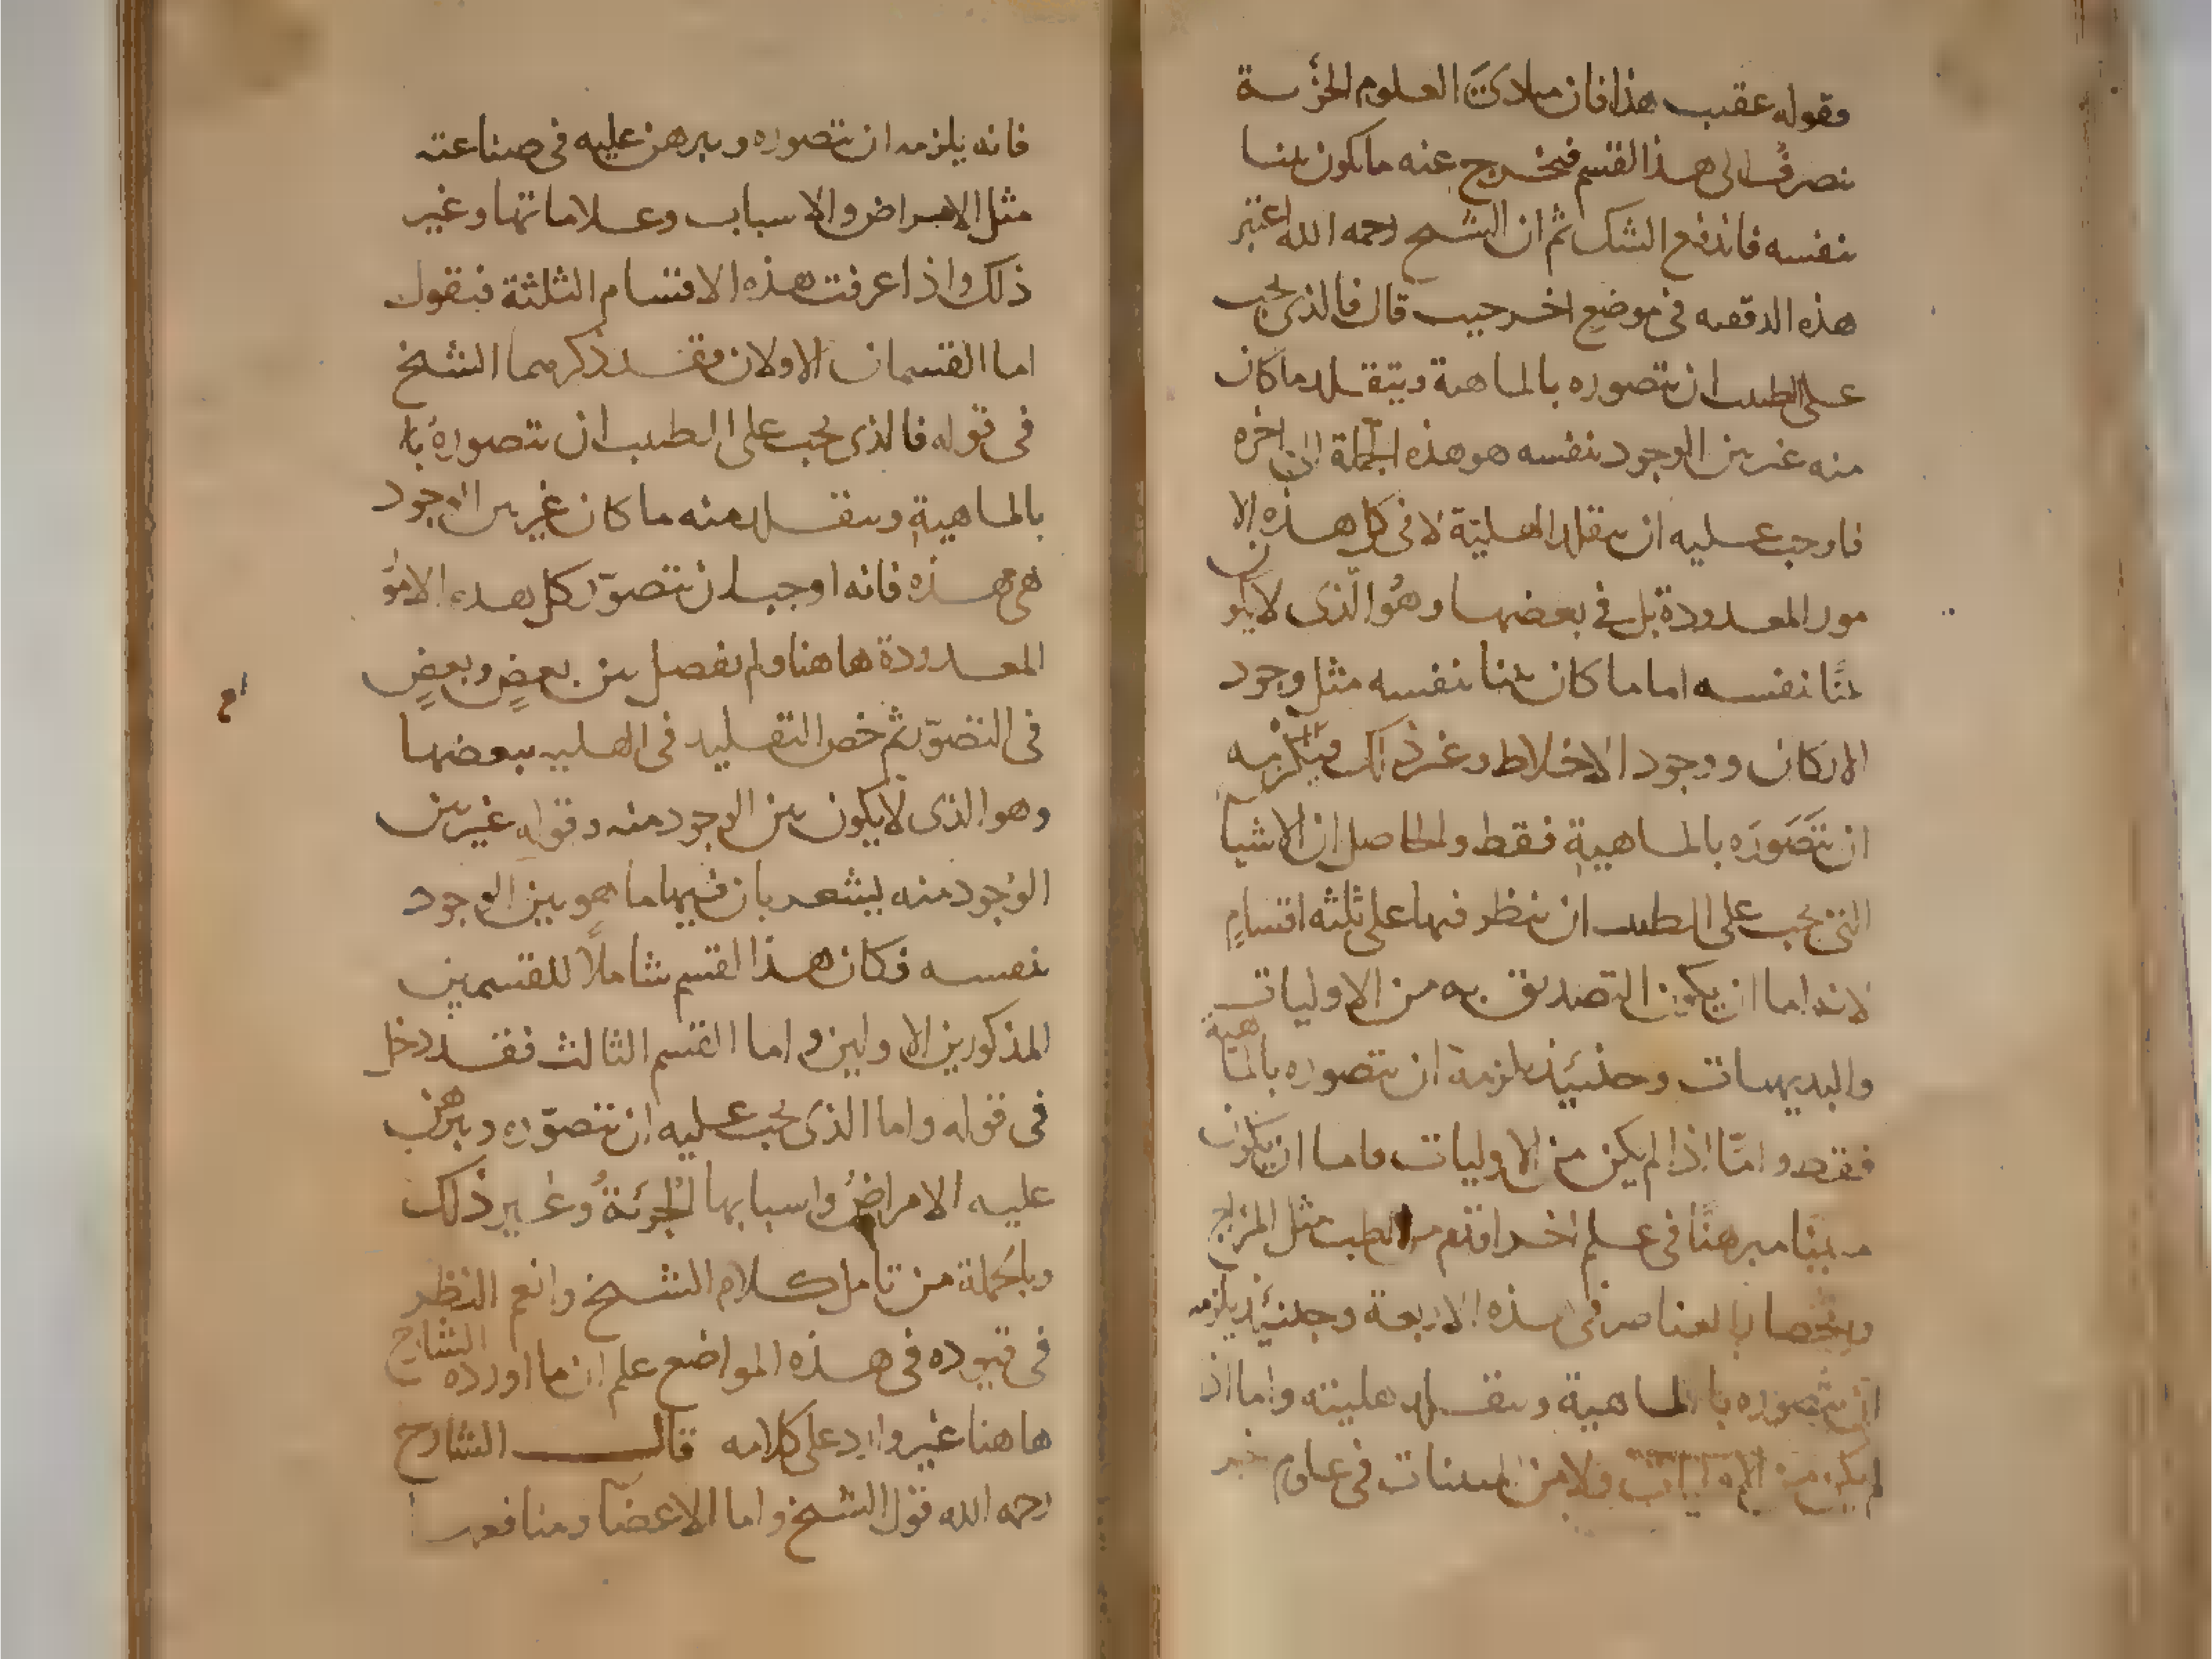 وقوله عقيب هذا فان مبادئ العلوم الجزئية
ينصرف الى هذا القسم فيخرج عنه ما يكون بينا
بنفسه فاندفع الشك ثم ان الشيخ رحمه الله اعتبر
هذه الدقيقه في موضع اخر حيث قال فالذي يجب
على الطبيب ان يتصوره بالماهية ويتقلد ما كان
منه غير بين الوجود بنفسه هو هذه الجملة الى اخره
فاوجب عليه ان يتقلد الهلية لا في كل هذه الا
مور المعدودة بل في بعضها وهو الذي لا يكون
بينا بنفسه اما ما كان بينا بنفسه مثل وجود
الاركان ووجود الاخلاط وغير ذلك فيلزمه
ان يتصوره بالماهية فقط والحاصل ان الاشيا
التي يجب على الطبيب ان ينظر فيها على ثلثه اقسام
لانه اما ان يكون التصديق به من الاوليات
والبديهيات وحينئذ يلزمه ان يتصوره بالماهية
فقط واما اذا لم يكن من الاوليات فاما ان يكون
مبينا مبرهنا في علم اخر اقدم من الطب مثل المزاج
بالعناصر في هذه الاربعة وحينئذ يلزمه
ان يتصوره بالماهية ويتقلد هليته واما اذا
لم يكن من الاوليات ولا من المبينات في علوم
فانه يلزمه ان يتصوره ويبرهن عليه في صناعته
مثل الامراض والاسباب وعلاماتها وغير
ذلك واذا عرفت هذه الاقسام الثلثة فنقول
اما القسمان الاولان فقد ذكرهما الشيخ
في قوله فالذي يجب على الطبيب ان يتصوره با
بالماهية ويتقلد منه ما كان غير بين الوجود
هي هذه فانه اوجب ان يتصور كل هذه الامو
المعدودة هاهنا ولم يفصل بين بعض وبعض
في التصور ثم خص التقليد في الهليه ببعضها
وهو الذي لا يكون بين الوجود منه وقوله غير بين
الوجود منه يشعر بان فيها ما هو بين الوجود
بنفسه فكان هذا القسم شاملا للقسمين
المذكورين الاولين واما القسم الثالث فقد دخل
في قوله واما الذي يجب عليه ان يتصوره ويبرهن
عليه الامراض واسبابها الجزئية وغير ذلك
وبالجملة من تامل كلام الشيخ وانعم النظر
في قيوده في هذه المواضع علم ان ما اورده الشارح
هاهنا غير وارد على كلامه قال الشارح
رحمه الله قول الشيخ واما الاعضا ومنافعها